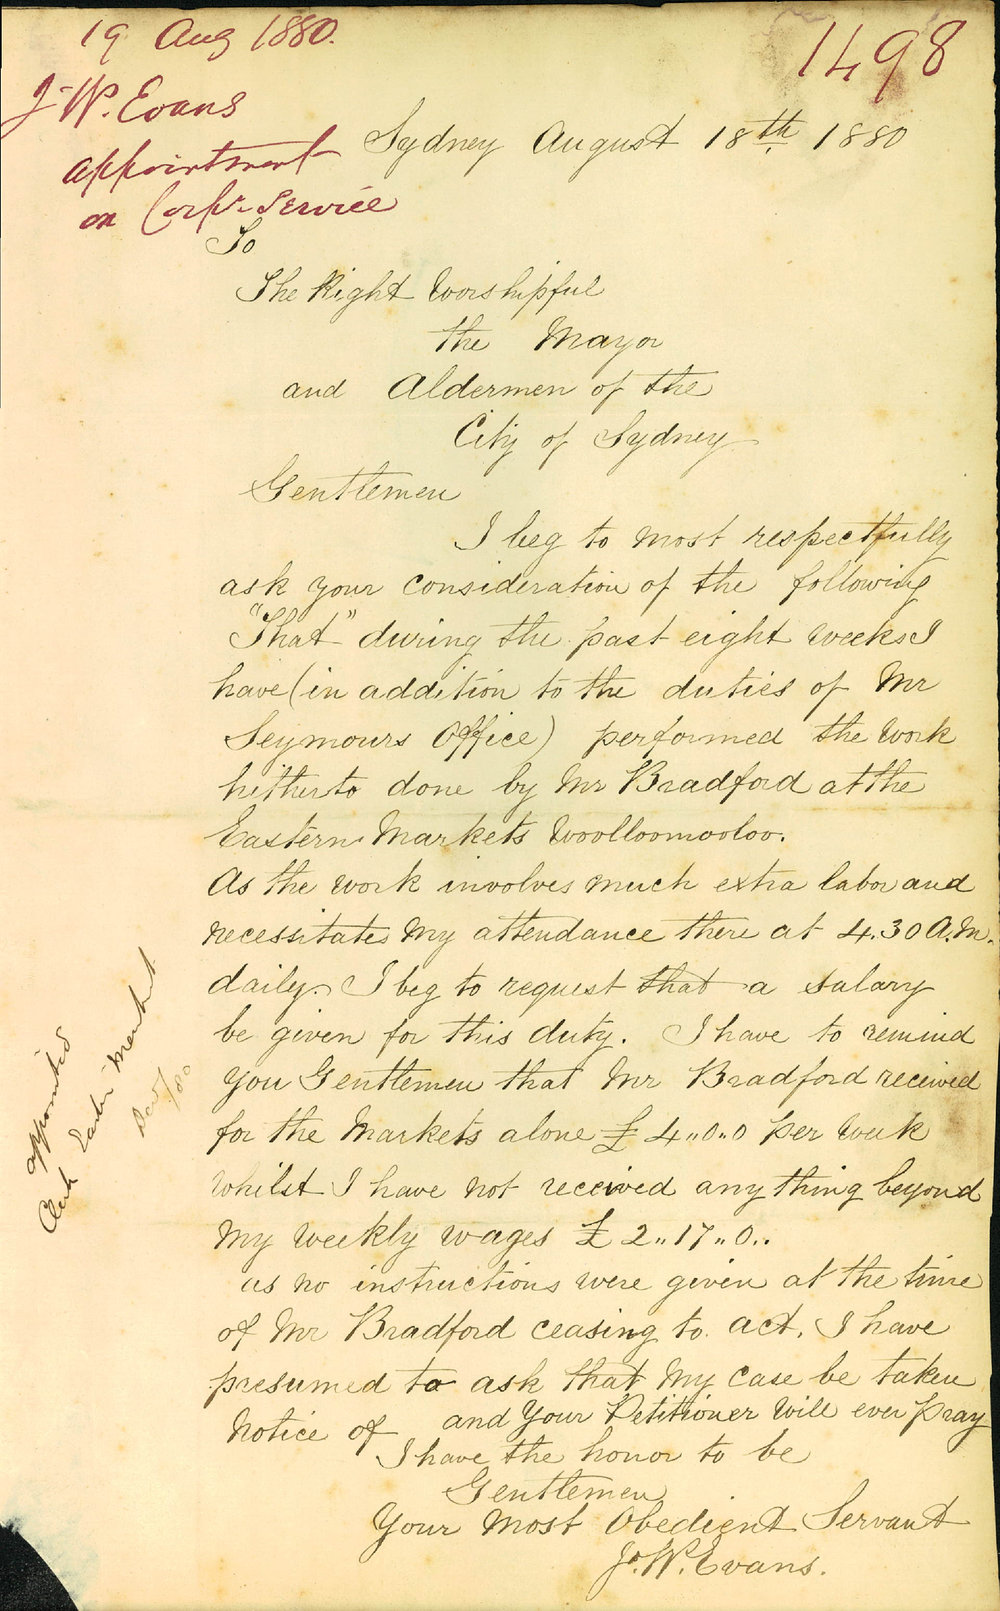 19 Aug 1880.
1498
J. W. Evans
appointment
on Corpn Service
Sydney August 18th 1880
To
The Right Worshipful
the Mayor
and Aldermen of the
City of Sydney
Gentlemen
I beg to most respectfully
ask your consideration of the following
"That" during the past eight weeks I
have (in addition to the duties of Mr
Seymours Office) performed the work
hitherto done by Mr Bradford at the
Eastern Markets Woolloomooloo.
As the work involves much extra labor and
necessitates my attendance there at 4.30 A.M.
daily. I beg to request that a salary
be given for this duty. I have to remind
you Gentlemen that Mr Bradford received
for the Markets alone £4"0"0 per week
whilst I have not received any thing beyond
my weekly wages £2"17"0"
as no instructions were given at the time
of Mr Bradford ceasing to act, I have
presumed to ask that my case be taken
notice of and your Petitioner will ever Pray
I have the honor to be
Gentlemen
Your most Obedient Servant
Jo. W. Evans.
appointed
Clerk Eastn Market
/80